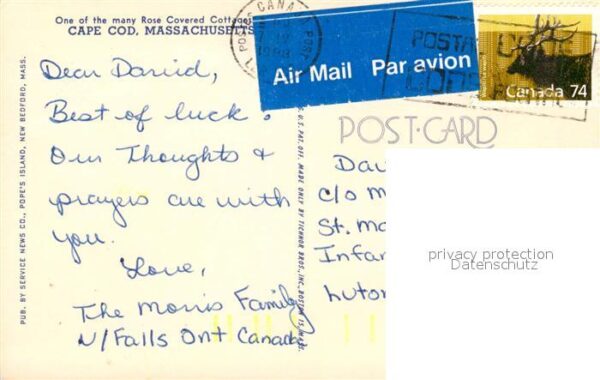 One of the many Rose Covered Cottages
CAPE COD, MASSACHUSETTS
Dear David,
Best of luck!
Our Thoughts &
prayers are with
you.
Love,
The Morris Family
N/Falls Ont Canada
PUB. BY SERVICE NEWS CO., POPE'S ISLAND, NEW BEDFORD, MASS.
U.S. PAT. OFF. MADE ONLY BY TICHNOR BROS., INC., BOSTON 15, MASS.
CANADA
POSTES
POST
1988
Air Mail Par avion
POSTAL CODE
CODE
Canada 74
POST-CARD
Dav
c/o M
St. Ma
Infan
Luton
privacy protection
Datenschutz